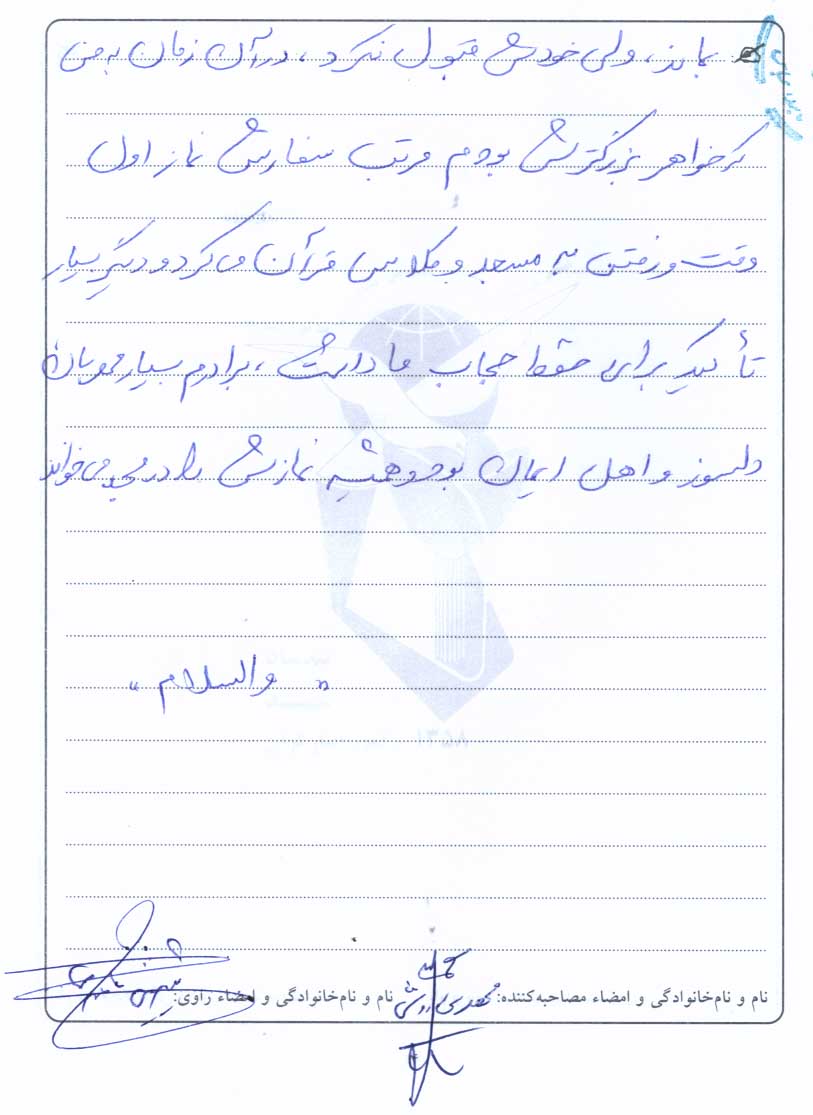 بماند، ولی خودش قبول نکرد، در آن زمان به من
که خواهر بزرگترش بودم مرتب سفارش نماز اول
وقت و رفتن به مسجد و کلاس قرآن می کرد و دیگر بسیار
تأکید برای حفظ حجاب ما داشت، برادرم بسیار مهربان
دلسوز و اهل ایمان بود و همیشه نمازش را در مسجد می خواند
" والسلام "
۱۳۵۸
نام و نام‌خانوادگی و امضاء مصاحبه‌کننده: نام و نام‌خانوادگی و امضاء راوی: